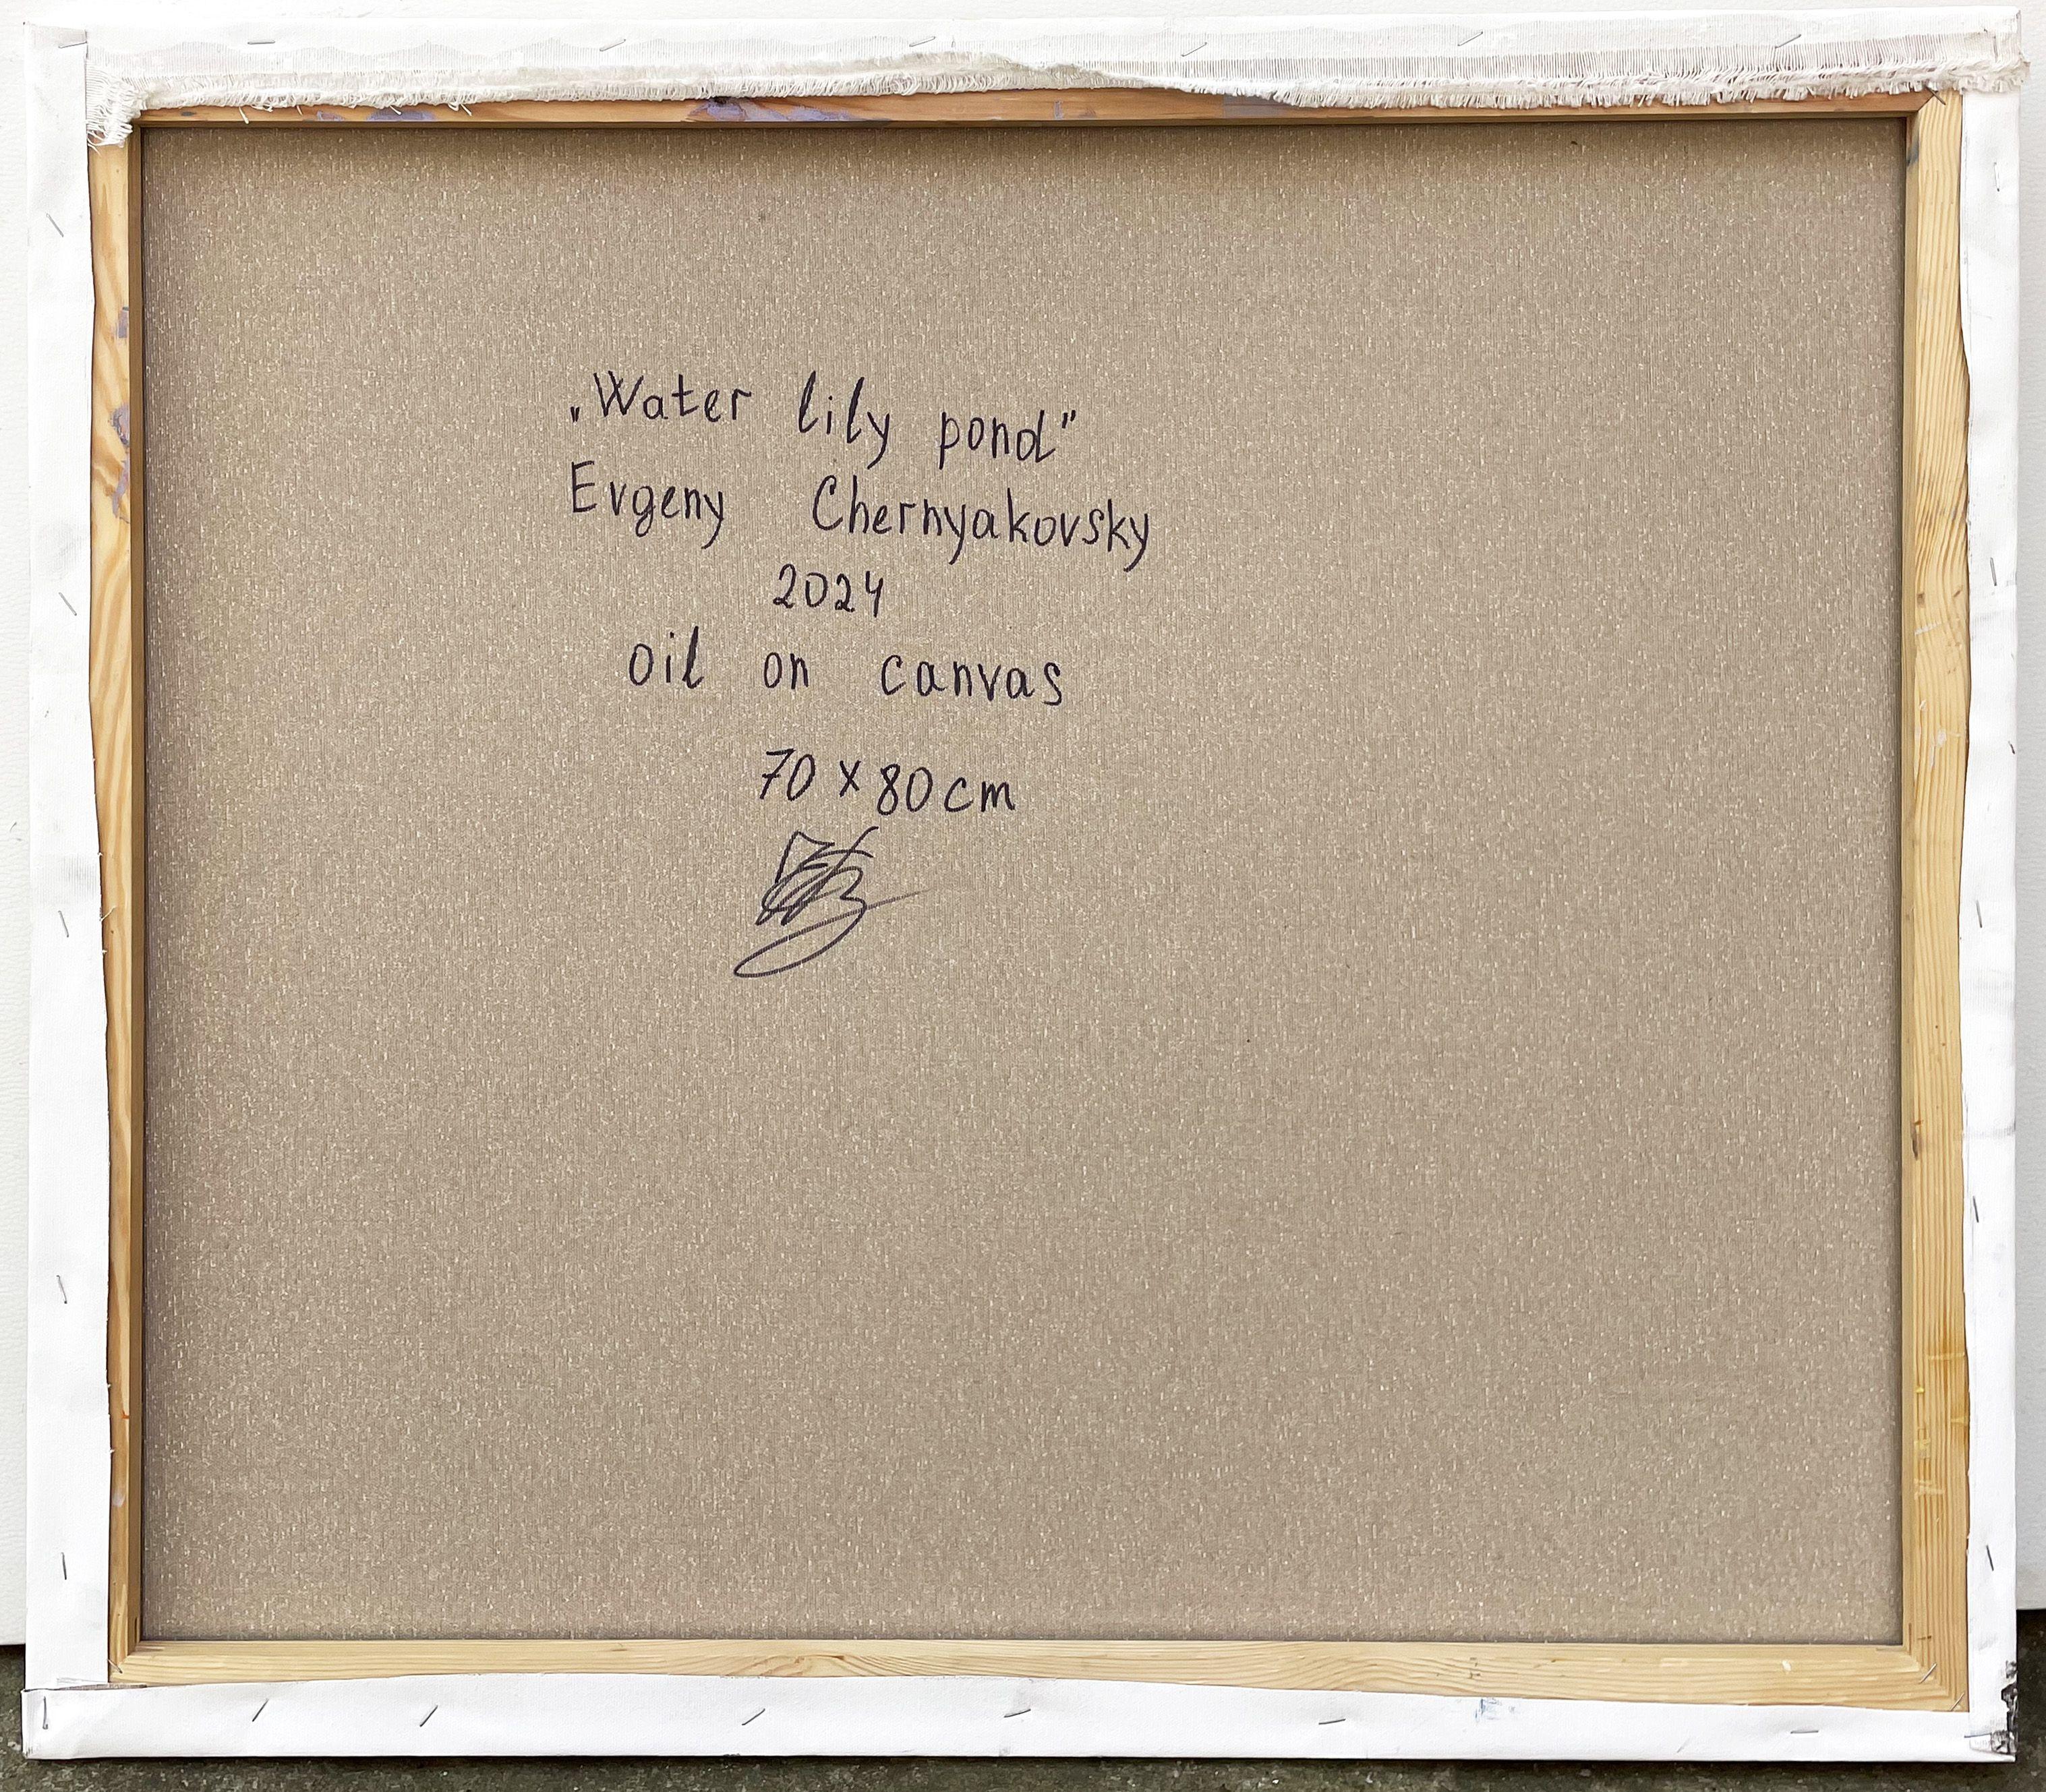 „Water lily pond"
Evgeny Chernyakovsky
2024
oil on canvas
70 x 80 cm